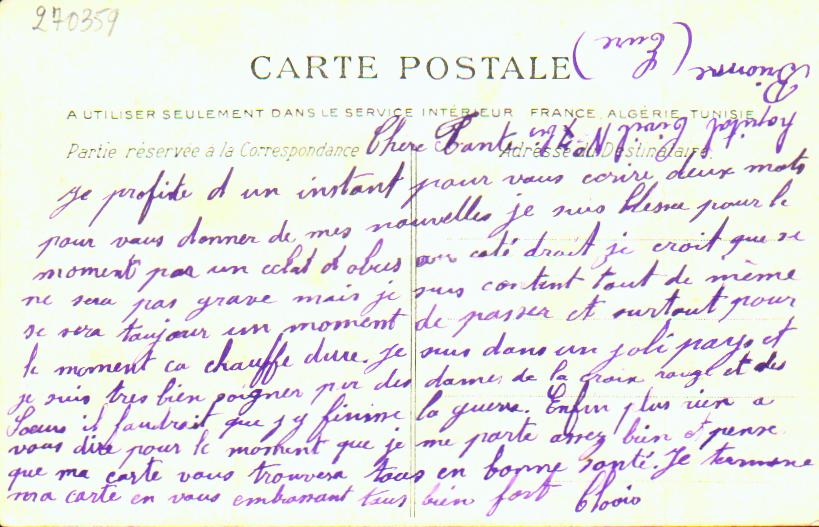 270359
CARTE POSTALE
A UTILISER SEULEMENT DANS LE SERVICE INTÉRIEUR FRANCE, ALGÉRIE, TUNISIE
Partie réservée à la Correspondance
Adresse du Destinataire.
hopital Civil No 21 bis
Brionne
(Eure)
Chere Tante
Je profite d un instant pour vous ecrire deux mots
pour vous donner de mes nouvelles je suis blesse pour le
moment par un eclat d obus au coté droit je croit que se
ne sera pas grave mais je suis content tout de même
se sera toujour un moment de passer et surtout pour
le moment ca chauffe dure. Je suis dans un joli pays et
je suis tres bien soigner par des dames de la croix rouge et des
Soeurs il faudrait que j y finisse la guerre. Enfin plus rien a
vous dire pour le moment que je me porte assez bien et pense
que ma carte vous trouvera tous en bonne santé. Je termine
ma carte en vous embrassant tous bien fort Clovis